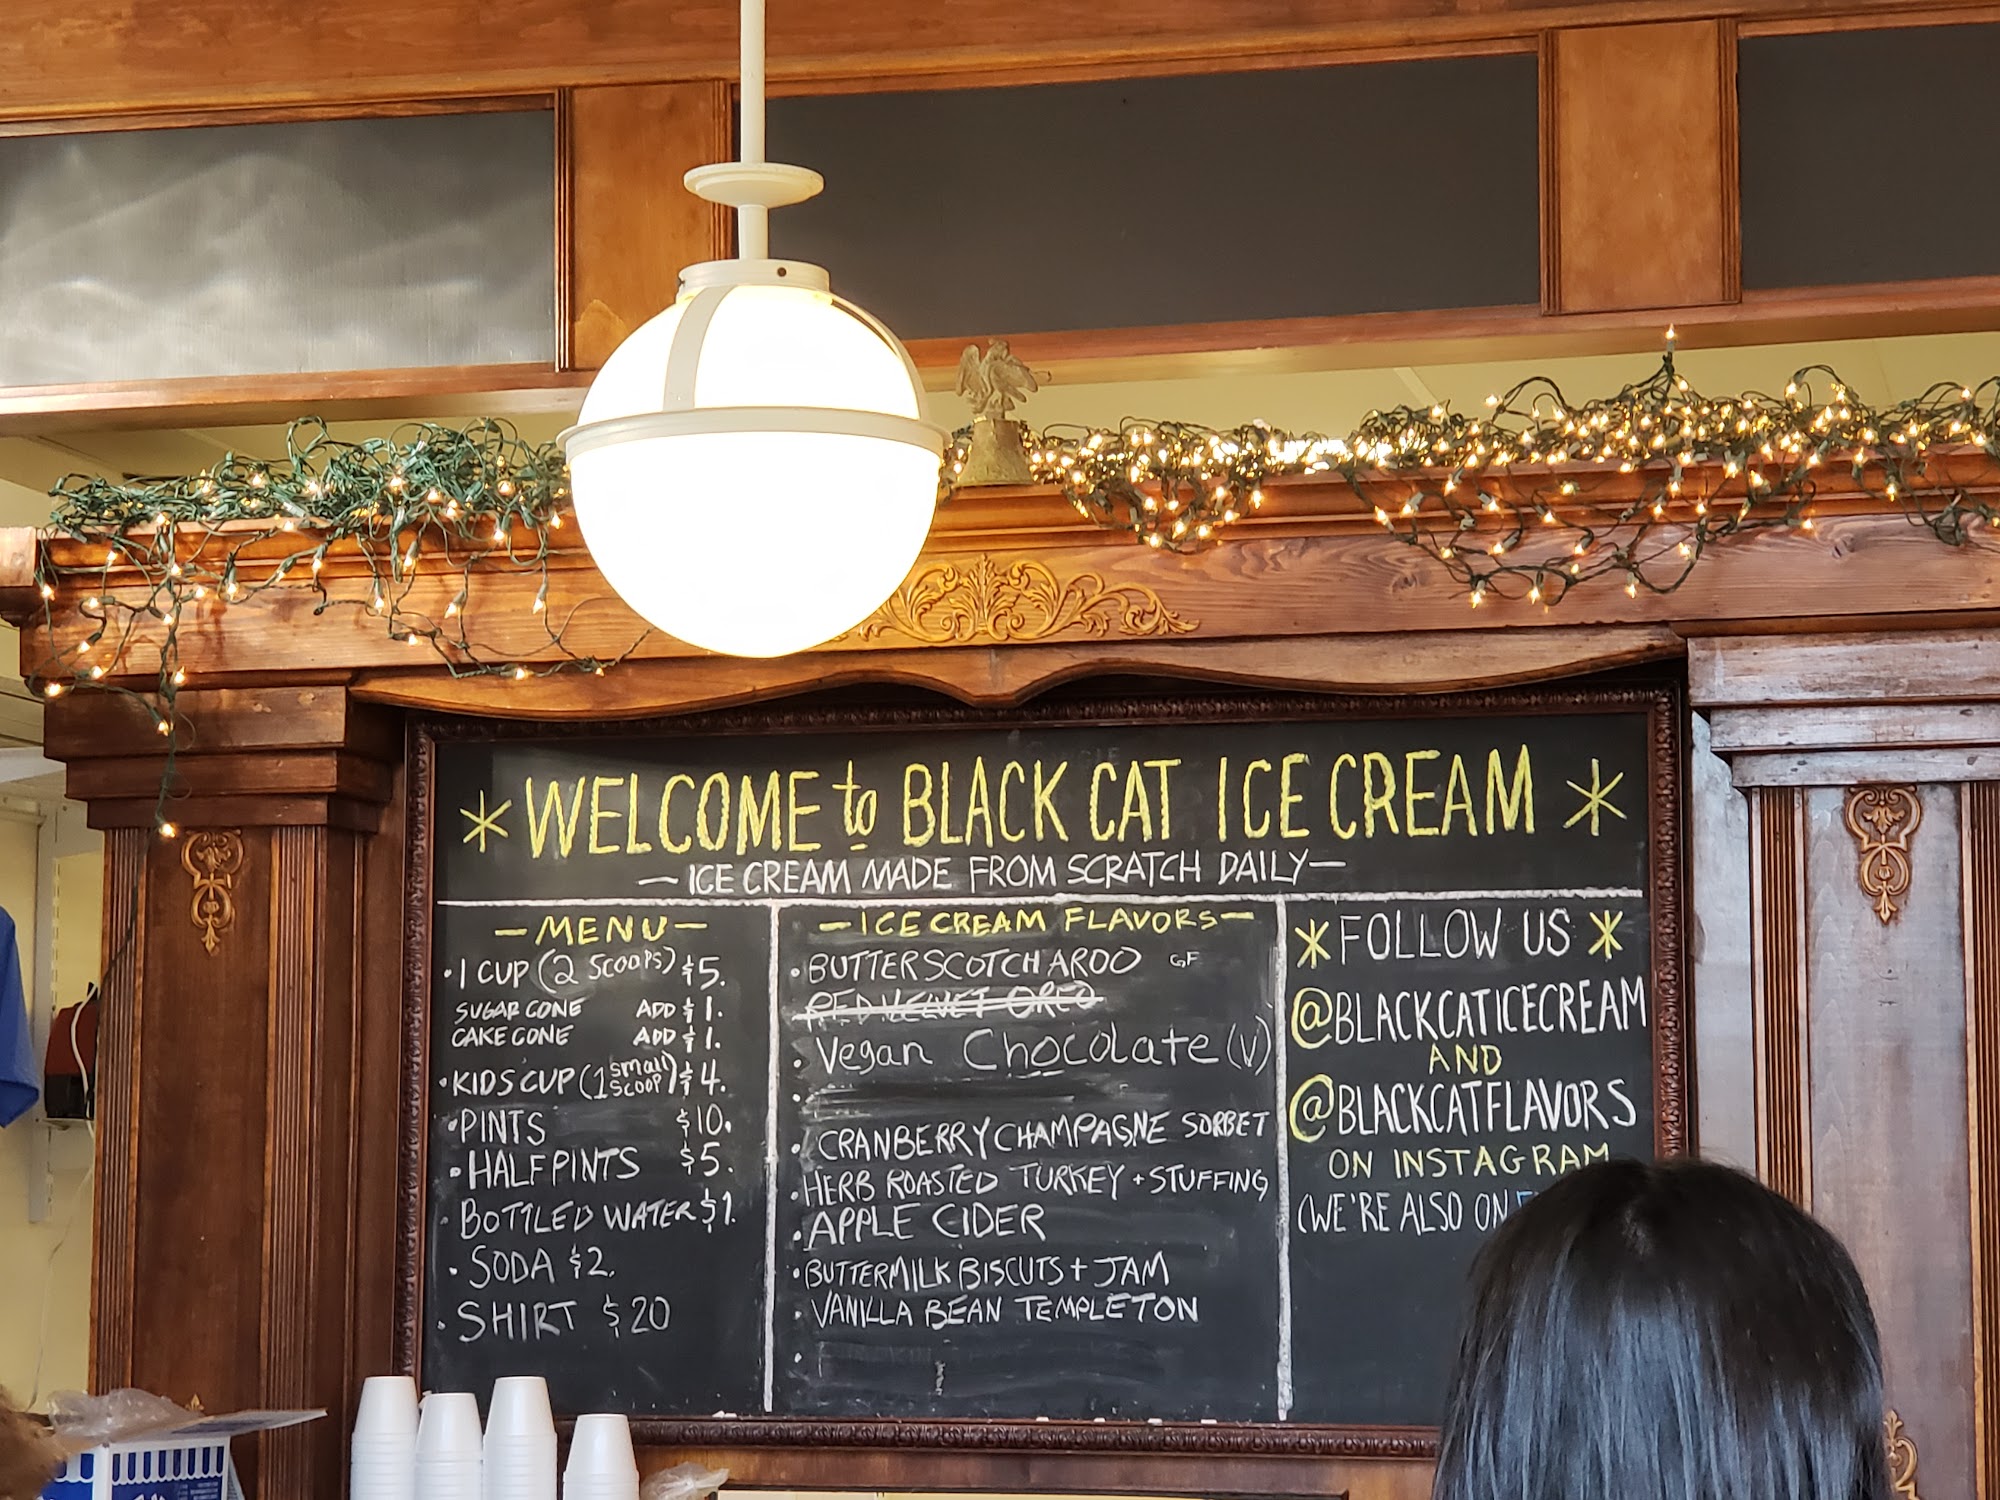 * WELCOME to BLACK CAT ICE CREAM *
— ICE CREAM MADE FROM SCRATCH DAILY —
— MENU —
• 1 CUP (2 SCOOPS) $5.
SUGAR CONE ADD $1.
CAKE CONE ADD $1.
• KIDS CUP (1 small SCOOP) $4.
• PINTS $10.
• HALF PINTS $5.
• BOTTLED WATER $1.
• SODA $2.
• SHIRT $20
— ICE CREAM FLAVORS —
• BUTTERSCOTCHAROO GF
RED VELVET OREO
• Vegan Chocolate (V)
• CRANBERRY CHAMPAGNE SORBET
• HERB ROASTED TURKEY + STUFFING
• APPLE CIDER
• BUTTERMILK BISCUTS + JAM
• VANILLA BEAN TEMPLETON
* FOLLOW US *
@BLACKCATICECREAM
AND
@BLACKCATFLAVORS
ON INSTAGRAM
(WE'RE ALSO ON